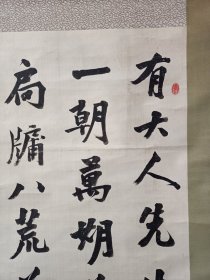 有大人先
一朝萬朔
扃牖八荒